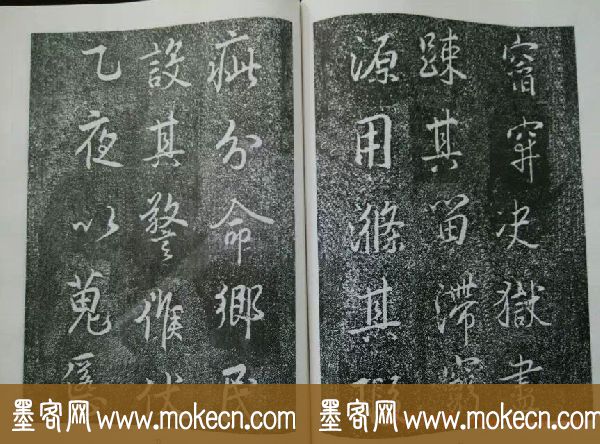 穽决獄
踈其留滯窮
源用滌其
疵分命鄉民
設其警候
乙夜以蒐
墨客网 www.mokecn.com 墨客网 www.mokecn.com